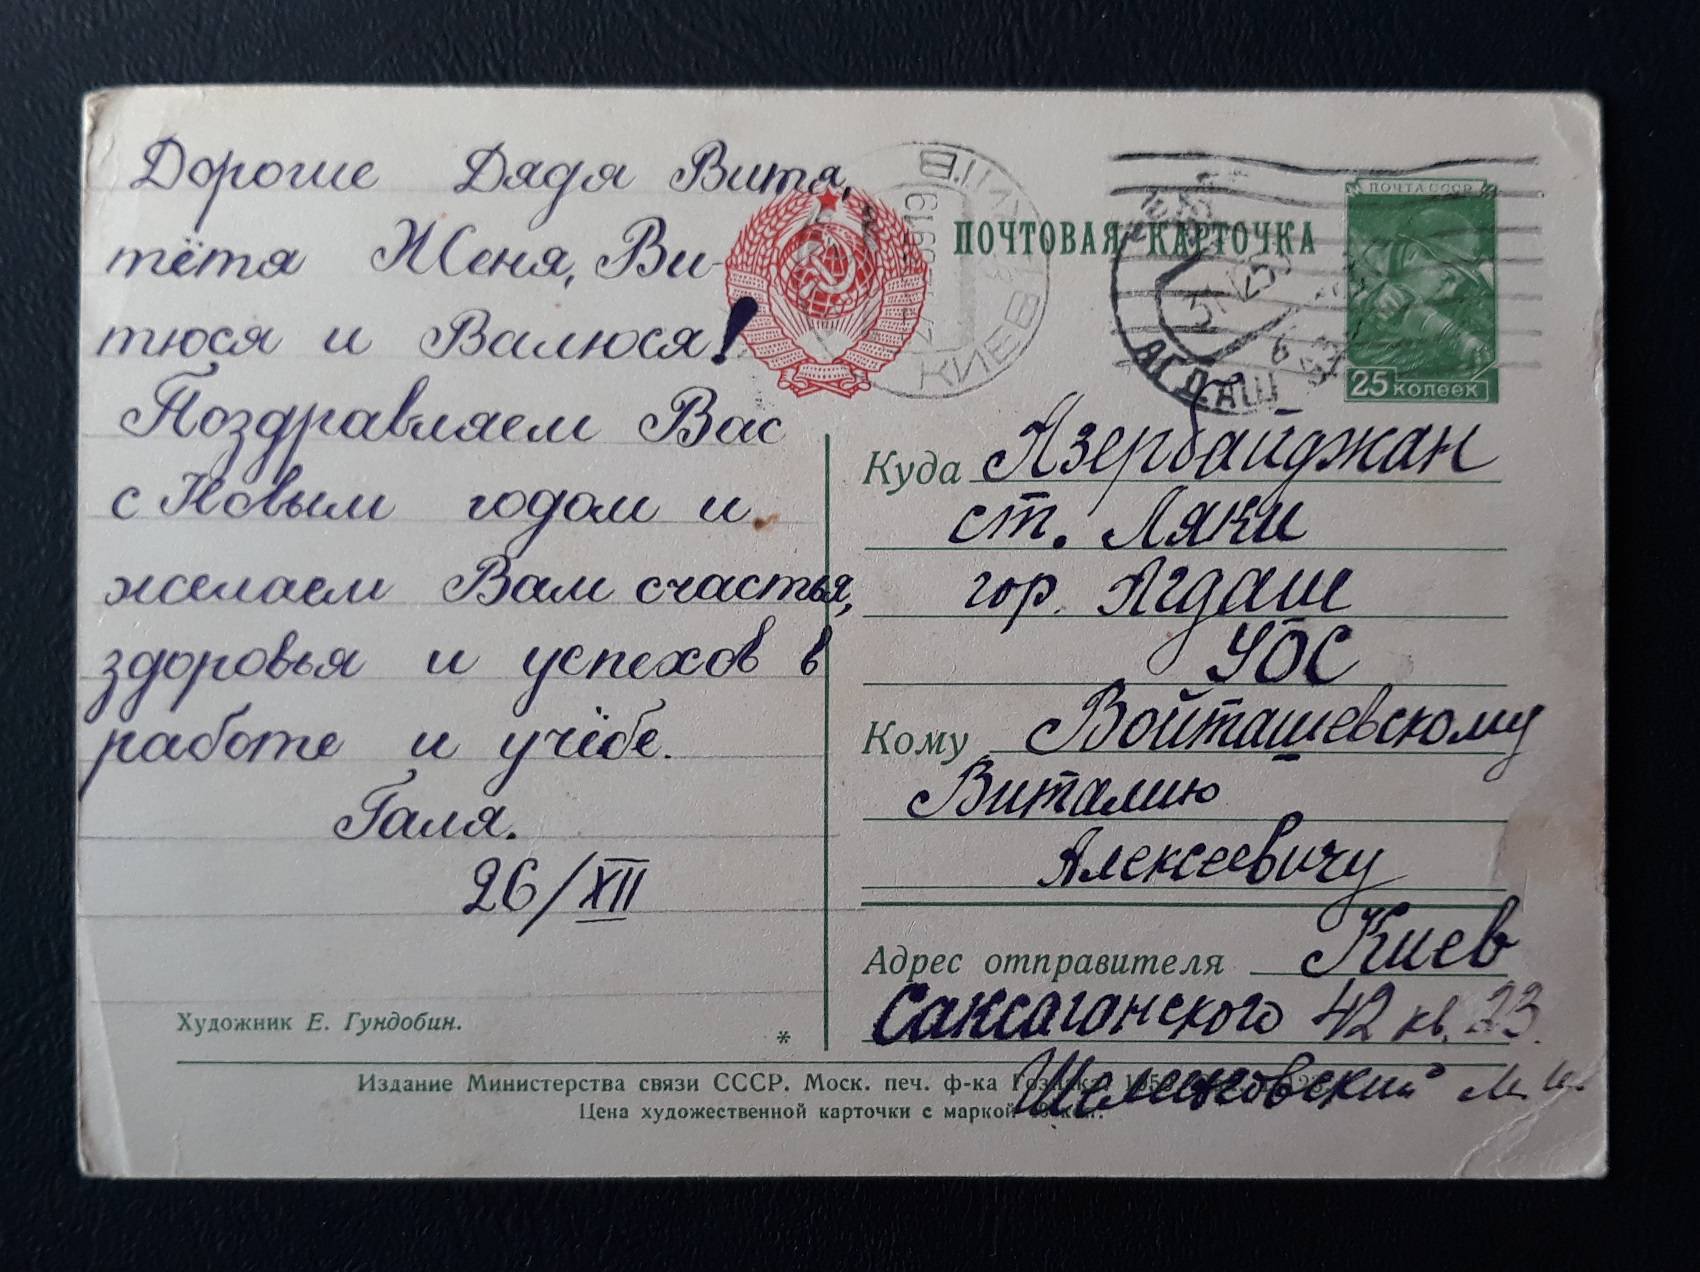 Дорогие Дядя Витя,
тётя Женя, Ви-
тюся и Валюся!
Поздравляем Вас
с Новым годом и
желаем Вам счастья,
здоровья и успехов в
работе и учёбе.
Галя.
26/XII
Художник Е. Гундобин.
*
ПОЧТОВАЯ КАРТОЧКА
ПОЧТА СССР
25 копеек
КИЕВ
АГДАШ
Куда Азербайджан
ст. Ляки
гор. Агдаш
УОС
Кому Войташевскому
Виталию
Алексеевичу
Адрес отправителя Киев
Саксаганского 42 кв. 23.
Издание Министерства связи СССР. Моск. печ. ф-ка Гознака.
Цена художественной карточки с маркой